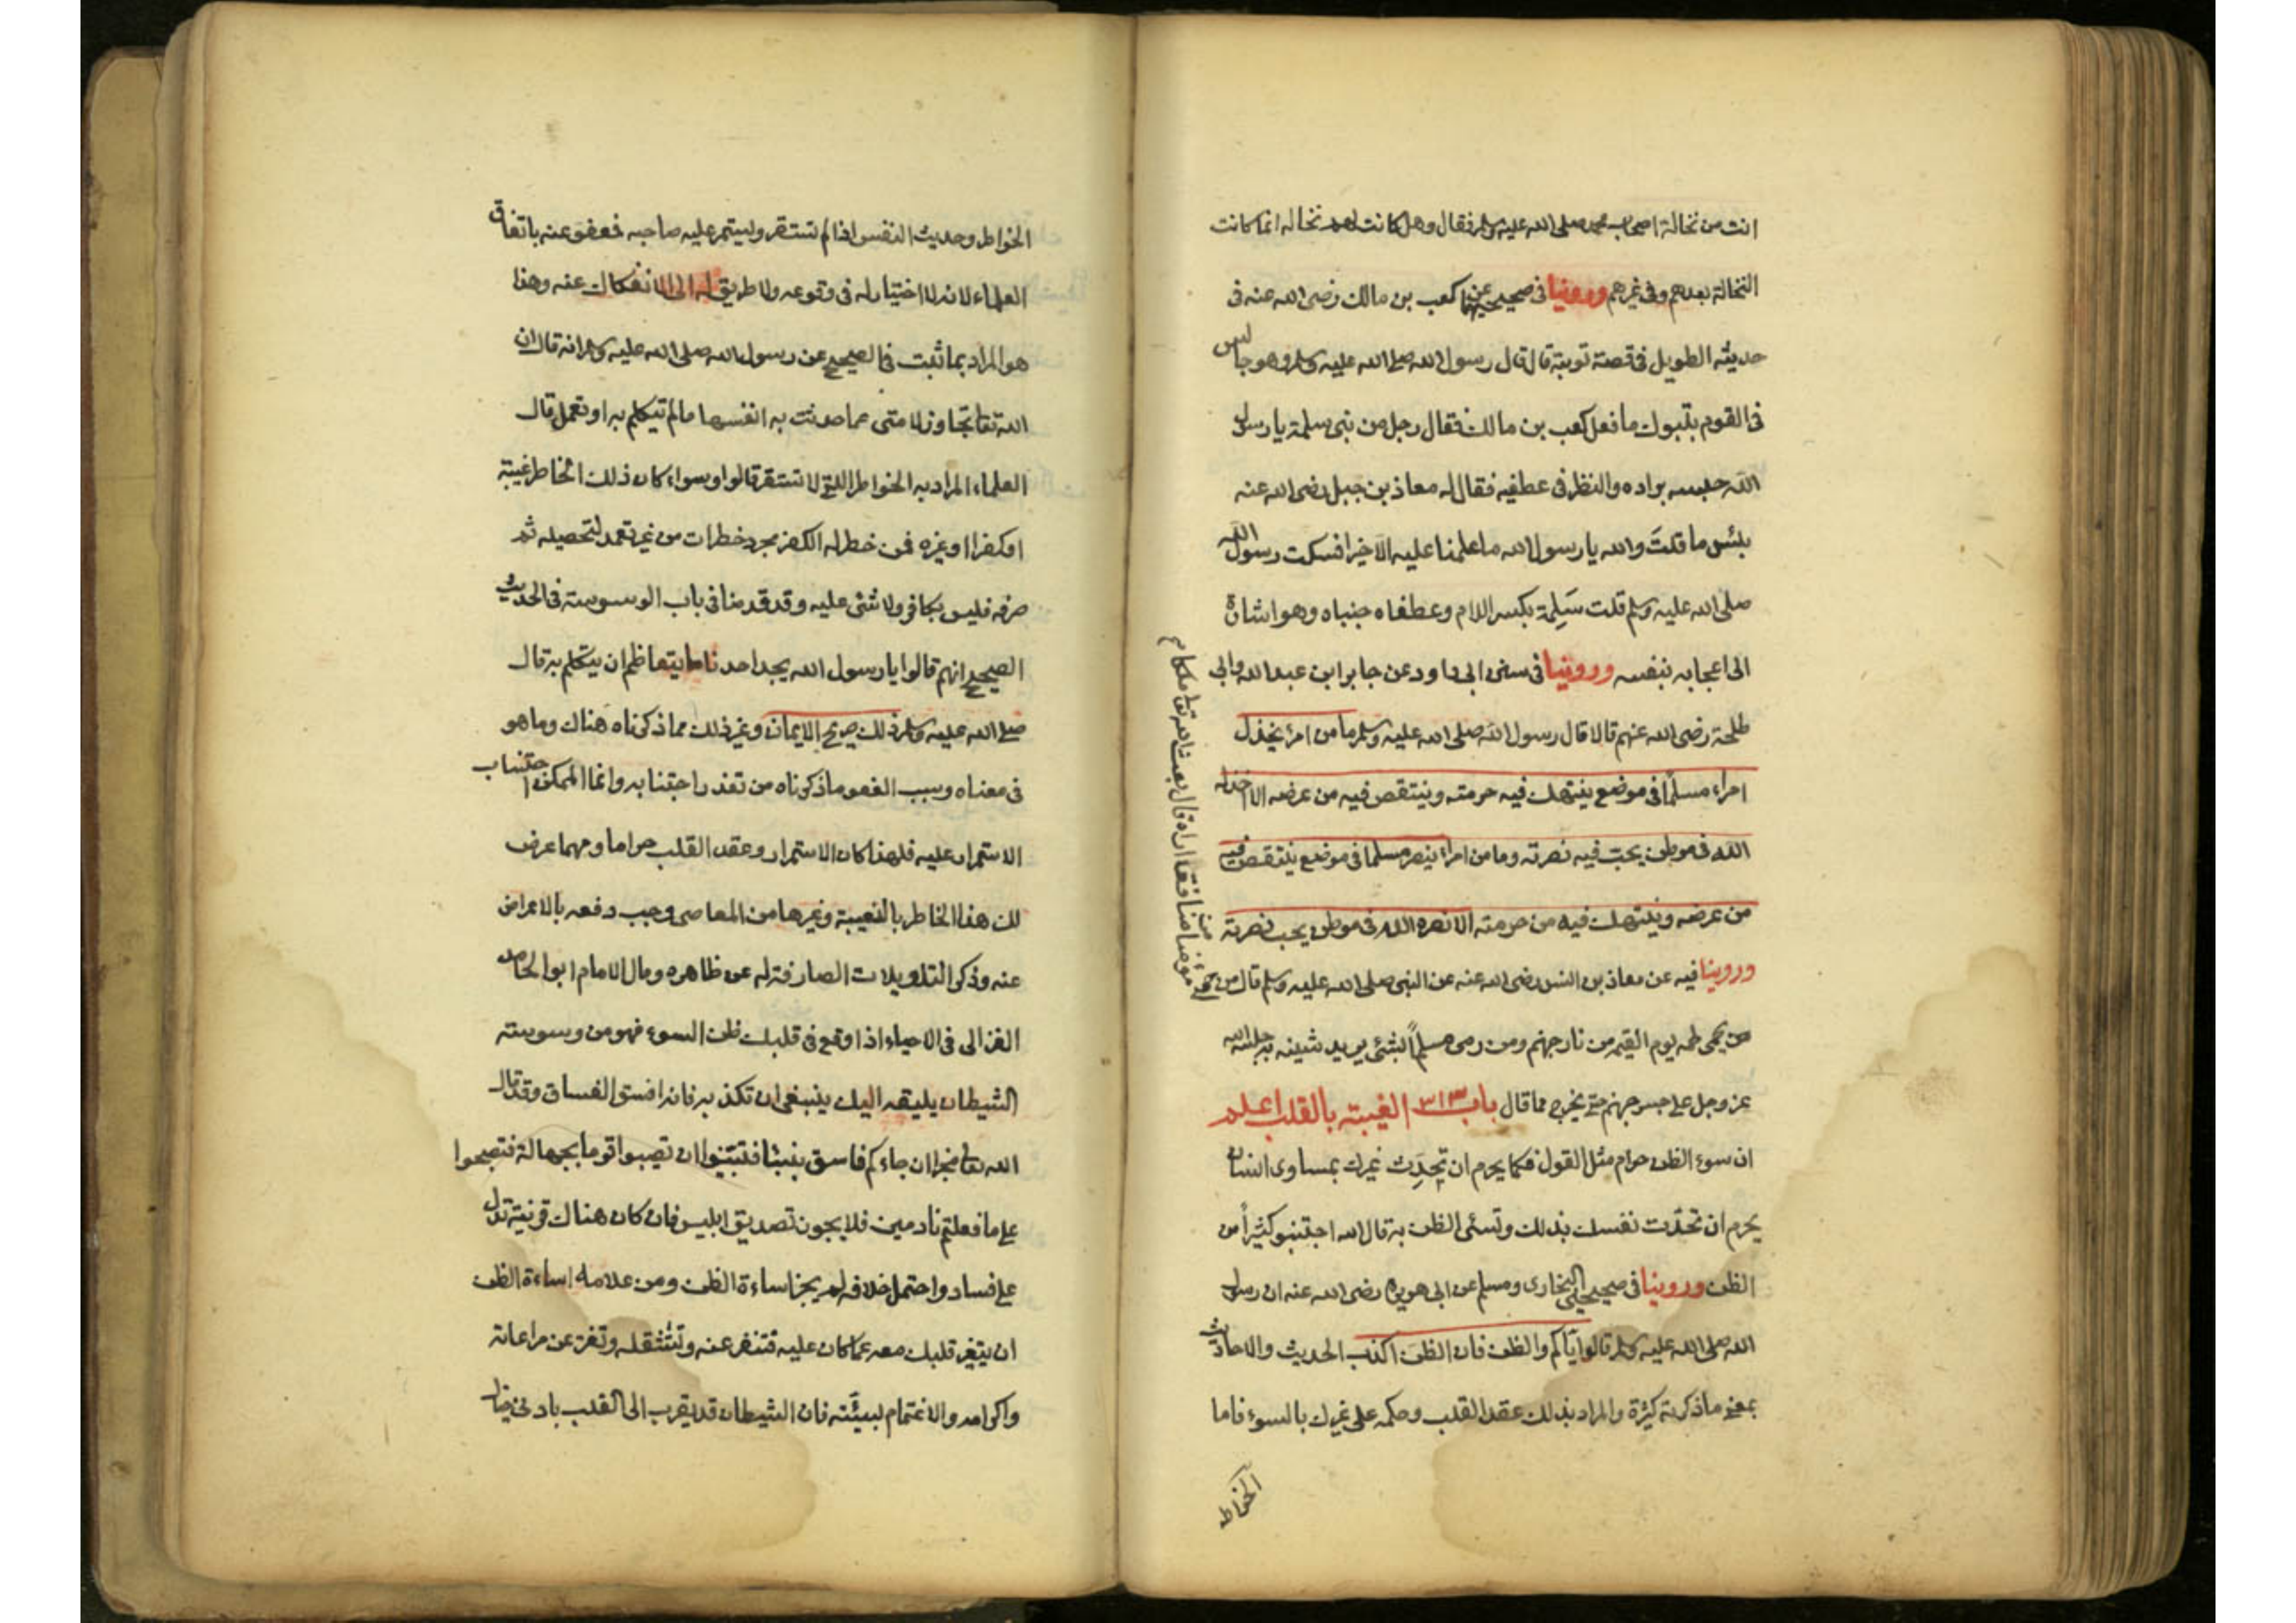 انت من نخالة اصحاب محمد صلى الله عليه وسلم فقال وهل كانت لهم نخالة انما كانت
النخالة بعدهم وفى غيرهم وروينا فى صحيحيهما عن كعب بن مالك رضى الله عنه فى
حديثه الطويل فى قصة توبته قال قال رسول الله صلى الله عليه وسلم وهو جالس
فى القوم بتبوك ما فعل كعب بن مالك فقال رجل من بنى سلمة يا رسول
الله حبسه براده والنظر فى عطفيه فقال له معاذ بن جبل رضى الله عنه
بئس ما قلتَ والله يا رسول الله ما علمنا عليه الا خيرا فسكت رسول الله
صلى الله عليه وسلم قلت سَلِمة بكسر اللام وعطفاه جنباه وهو اشارة
الى اعجابه بنفسه وروينا فى سنن ابى داود عن جابر ابن عبد الله وابى
طلحة رضى الله عنهم قالا قال رسول الله صلى الله عليه وسلم ما من امرئ يخذل
امراء مسلماً فى موضع ينتهك فيه حرمته وينتقص فيه من عرضه الا خذله
الله فى موطن يحب فيه نصرته وما من امراء ينصر مسلما فى موضع ينتقص فيه
من عرضه وينتهك فيه من حرمته الا نصره الله فى موطن يحب نصرته
وروينا فيه عن معاذ بن انس رضى الله عنه عن النبى صلى الله عليه وسلم قال من حمى
مؤمنا من منافق اراه قال بعث الله تعا ملكا
يحمى لحمه يوم القيمة من نار جهنم ومن رمى مسلماً بشئ يريد شينه به حبسه الله
عز وجل على جسر جهنم حتى يخرج مما قال باب ٣١٣ الغيبة بالقلب اعلم
ان سوء الظن حرام مثل القول فكما يحرم ان تحدِّث غيرك بمساوى انسان
يحرم ان تحدّث نفسك بذلك وتسئ الظن به قال الله اجتنبو كثيراً من
الظن وروينا فى صحيحى البخارى ومسلم عن ابى هريرة رضى الله عنه ان رسول
الله صلى الله عليه وسلم قال اياكم والظن فان الظن اكذب الحديث والاحاديث
بمعنى ما ذكرته كثيرة والمراد بذلك عقد القلب وحكمه على غيرك بالسوء فاما
الخواطر
الخواطر وحديث النفس اذا لم تستقر وليستمر عليه صاحبه فعفو عنه باتفاق
العلماء لانه لا اختيار له فى وقوعه ولا طريق له الى الانفكاك عنه وهذا
هو المراد بما ثبت فى الصحيح عن رسول الله صلى الله عليه وسلم انه قال ان
الله تعا تجاوز لامتى عما حدثت به انفسها ما لم تتكلم به او تعمل قال
العلماء المراد به الخواطر اللتى لا تستقر قالوا وسواء كان ذلك الخاطر غيبة
او كفرا او غيره فمن خطر له الكفر مجرد خطرات من غير تعمد لتحصيله ثم
صرفه فليس بكافر ولا شئ عليه وقد قدمنا فى باب الوسوسة فى الحديث
الصحيح انهم قالوا يا رسول الله يجد احدنا ما يتعاظم ان يتكلم به قال
صلى الله عليه وسلم ذلك صريح الايمان وغير ذلك مما ذكرناه هناك وما هو
فى معناه وسبب العفو ما ذكرناه من تعذر اجتنابه وانما الممكن اجتناب
الاستمرار عليه فلهذا كان الاستمرار وعقد القلب حراما ومهما عرض
لك هذا الخاطر بالغيبة وغيرها من المعاصى وجب دفعه بالاعراض
عنه وذكر التاويلات الصارفة له عن ظاهره ومال الامام ابو الحامد
الغزالى فى الاحياء اذا وقع فى قلبك ظن السوء فهو من وسوسة
الشيطان يلقيه اليك ينبغى ان تكذبه فانه افسق الفساق وقد قال
الله تعا مخبرا ان جاءكم فاسق بنبئا فتبيّنوا ان تصيبوا قوما بجهالة فتصبحوا
على ما فعلتم نادمين فلا يجوز تصديق ابليس فان كان هناك قرينة تدل
على فساد واحتمل خلافه لم يجز اساءة الظن ومن علامة اساءة الظن
ان يتغير قلبك معه عما كان عليه فتنفر عنه وتستثقله وتفتر عن مراعاته
واكرامه والاغتمام لسيئته فان الشيطان قد يقرب الى القلب بادنى خيال